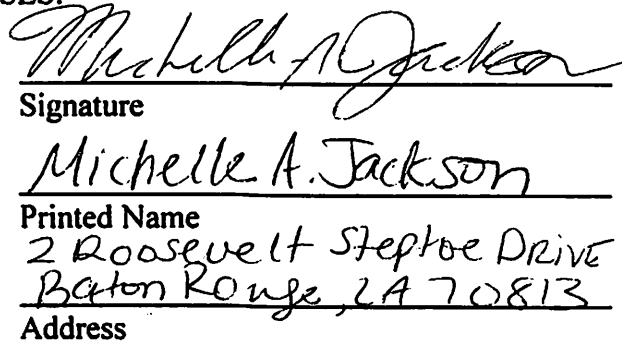 SES:
Michelle A Jackson
Signature
Michelle A. Jackson
Printed Name
2 Roosevelt Steptoe DRIVE
Baton Rouge, LA 70813
Address